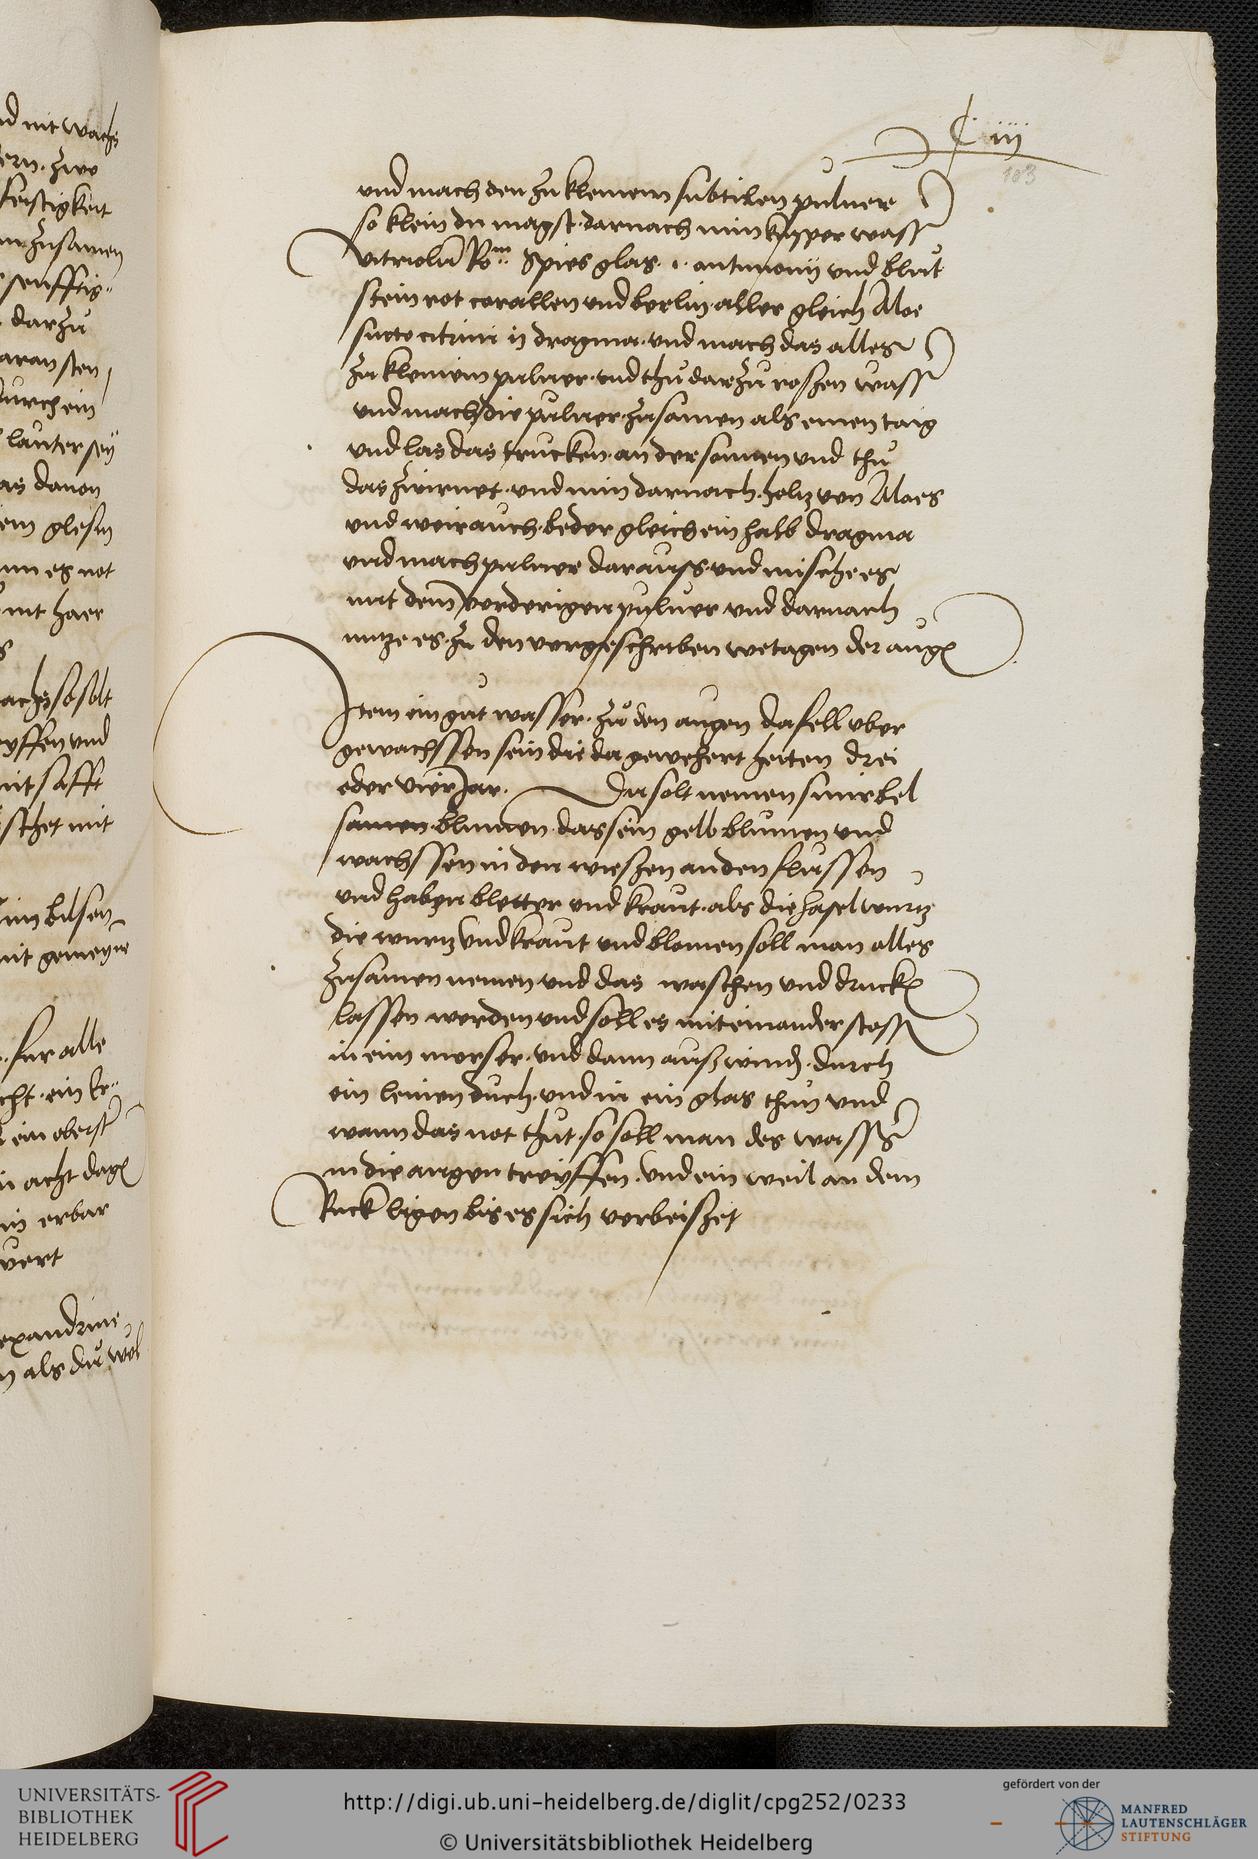 C iij
103
und mach den zu kleinem subtilen puluer
so klein du magst · darnach nim kupper wass
vitriolū Ro᷑m · Spies glas · i · antimonij und blut
stein rot corallen und berlin · aller gleich Aloe
succocitrini ij dragma · und mach das alles
zu kleinem puluer · und thu darzu roszen wass
und mach die puluer zusamen als einen taig
und las das trucken · an der sonnen und thu
das zwirnet · und nim darnach · holtz von Aloes
und weirauch · beder gleich ein halb dragma
und mach puluer darauss · und misch es
mit dem vorderigen puluer und darnach
nutze es zu den vorgeschriben wetagen der aug
Item ein gut wasser · zu den augen da fell vber
gewachssen sein die da gewehert hetten drei
oder vier Jar · Du solt nemen smirbel
samen blumen · das sein gelb blumen und
wachssen in den wieszen an den flussen
und haben bletter und kraut · als die hasel wurtz
die wurtz und kraut und blomen soll man alles
zusamen nemen und das waschen und druck
lassen werden und soll es mit einander stoss
in eim morser · und dann ausz wind · durch
ein leinen duch · und in ein glas thun und
wann das not thut · so soll man des wassers
in die augen treyffen · und ein weil an dem
Ruck ligen bis es sich verbeiszet
nd mit wachs
ern · zwo
feistigkeit
zusamen
senfftig
darzu
aran sten
durch ein
lauter sey
as dauon
em glesin
nn es not
mit haer
achs so solt
eyffen und
mit safft
schet mit
im bilsen
mit gemeyne
fur alle
cht · ein
ein oberst
n acht dag
in erbar
vert
exandrine
n als du wol
UNIVERSITÄTS-
BIBLIOTHEK
HEIDELBERG
http://digi.ub.uni-heidelberg.de/diglit/cpg252/0233
© Universitätsbibliothek Heidelberg
gefördert von der
MANFRED
LAUTENSCHLÄGER
STIFTUNG